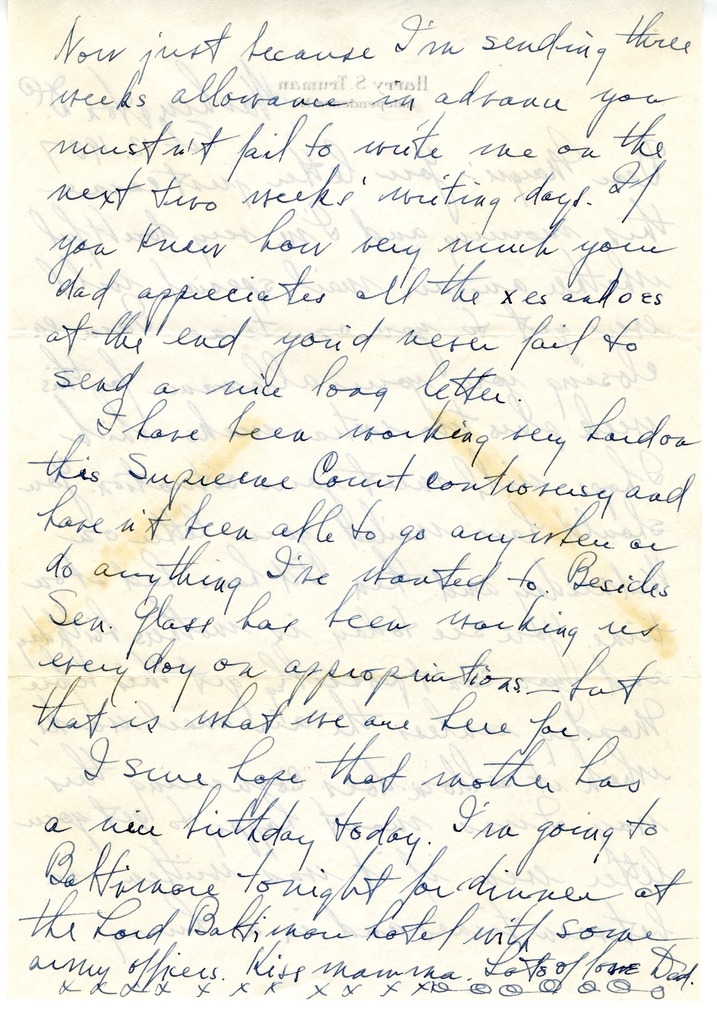 Now just because I'm sending three
weeks allowance in advance you
mustn't fail to write me on the
next two weeks' writing days. If
you knew how very much your
dad appreciates all the xes and oes
at the end you'd never fail to
send a nice long letter.
I have been working very hard on
this Supreme Court controversy and
haven't been able to go anywhere or
do anything I've wanted to. Besides
Sen. Glass has been working us
every day on appropriations — but
that is what we are here for.
I sure hope that mother has
a nice birthday today. I'm going to
Baltimore tonight for dinner at
the Lord Baltimore hotel with some
army officers. Kiss mamma. Lots of love Dad.
x x x x x x x x x x x x o o o o o o o o
Harry S. Truman